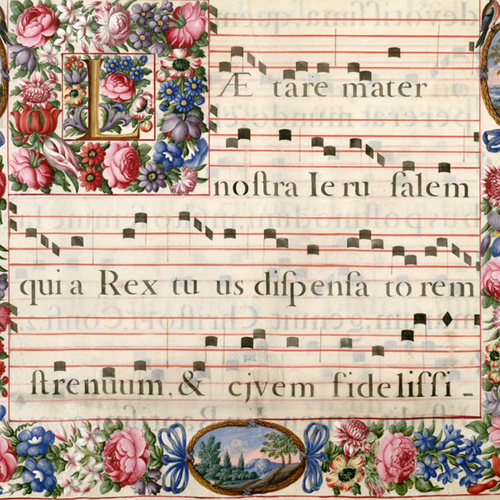 LÆ tare mater
noſtra Ie ru ſalem
qui a Rex tu us diſpenſa to rem
ſtrenuum, & cjvem fideliſſi -